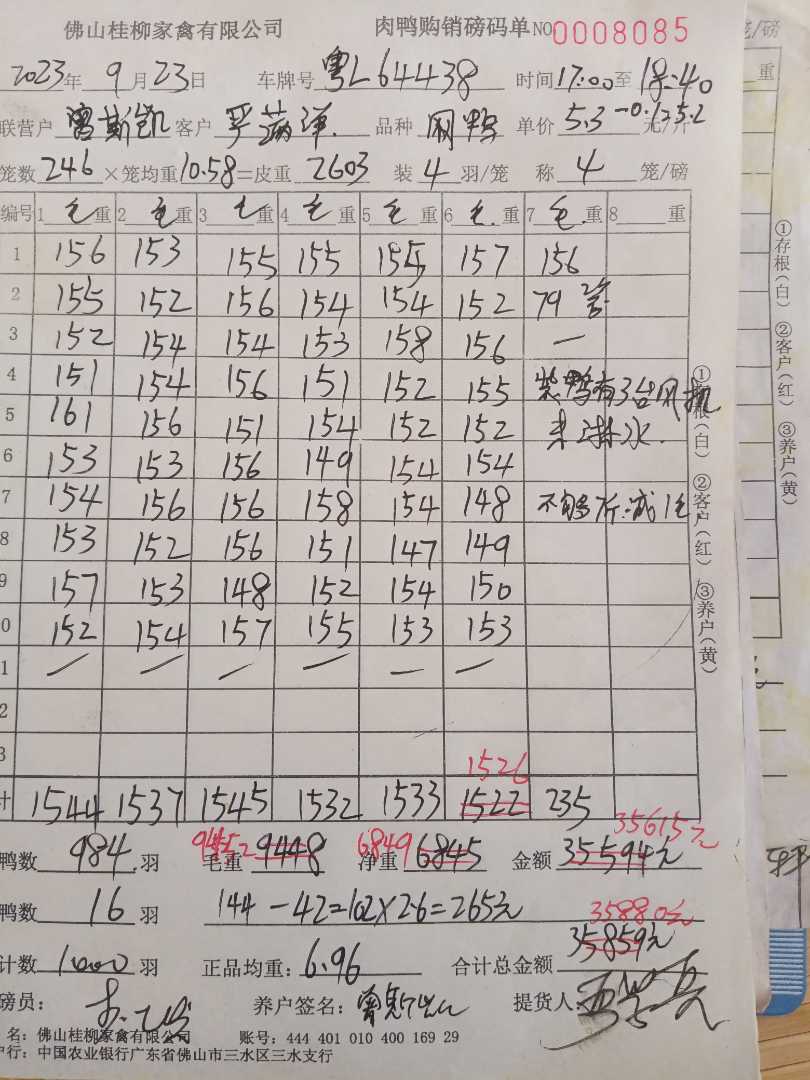 佛山桂柳家禽有限公司 肉鸭购销磅码单 NO 0008085
2023年 9月23日 车牌号 粤L64438 时间17:00至 18:40
联营户 曾斯凯 客户 品种 单价 5.3-0.1=5.2 元/斤
笼数246×笼均重10.58=皮重 2603 装 4 羽/笼 称 4 笼/磅
编号 1 毛 重 2 毛 重 3 毛 重 4 毛 重 5 毛 重 6 毛 重 7 毛 重 8 重
1 156 153 155 155 155 157 156
2 155 152 156 154 154 152 79 2笼
3 152 154 154 153 158 156 —
4 151 154 156 151 152 155 装鸭有3台风机
5 161 156 151 154 152 152 未排水
6 153 153 156 149 154 154
7 154 156 156 158 154 148 不够斤减1毛
8 153 152 156 151 147 149
9 157 153 148 152 154 150
0 152 154 157 155 153 153
1 — — — — — —
2
3
1526
计 1544 1537 1545 1532 1533 1522 235
35615元
鸭数 984 羽 9452 毛重 9448 6849 净重 6845 金额 35594元
鸭数 16 羽 144-42=102×2.6=265元 35880元
计数 1000 羽 正品均重: 6.96 合计总金额 35859元
磅员: 养户签名: 提货人
名: 佛山桂柳家禽有限公司 账号: 444 401 010 400 169 29
户行: 中国农业银行广东省佛山市三水区三水支行
①存根(白) ②客户(红) ③养户(黄)
笼/磅
重
①存根(白) ②客户(红) ③养户(黄)